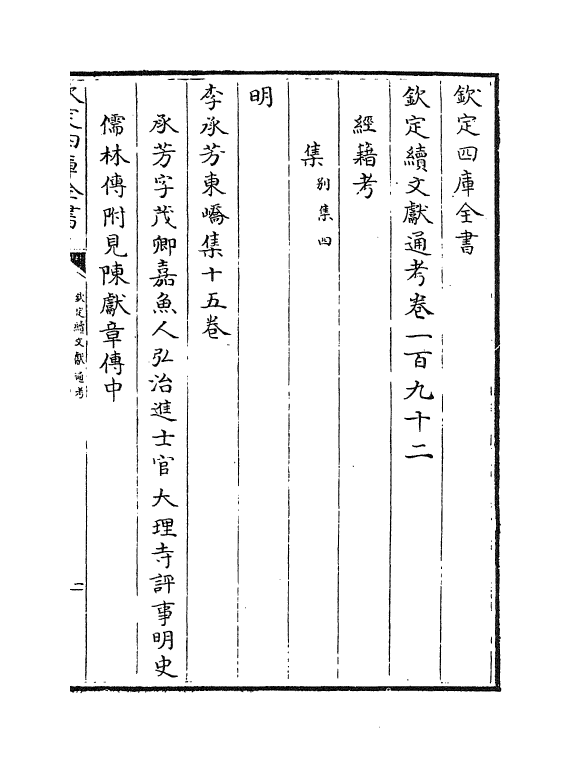 欽定四庫全書
欽定續文獻通考卷一百九十二
經籍考
集别集四
明
李承芳東嶠集十五卷
承芳字茂卿嘉魚人弘治進士官大理寺評事明史
儒林傳附見陳獻章傳中
欽定四庫全書
欽定續文獻通考
二